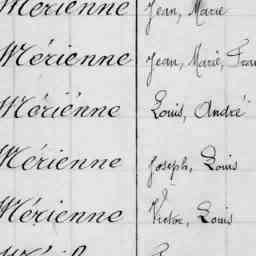 Mérienne Jean, Marie
Mérienne Jean, Marie,
Mérienne Louis, André
Mérienne Joseph, Louis
Mérienne Victor, Louis